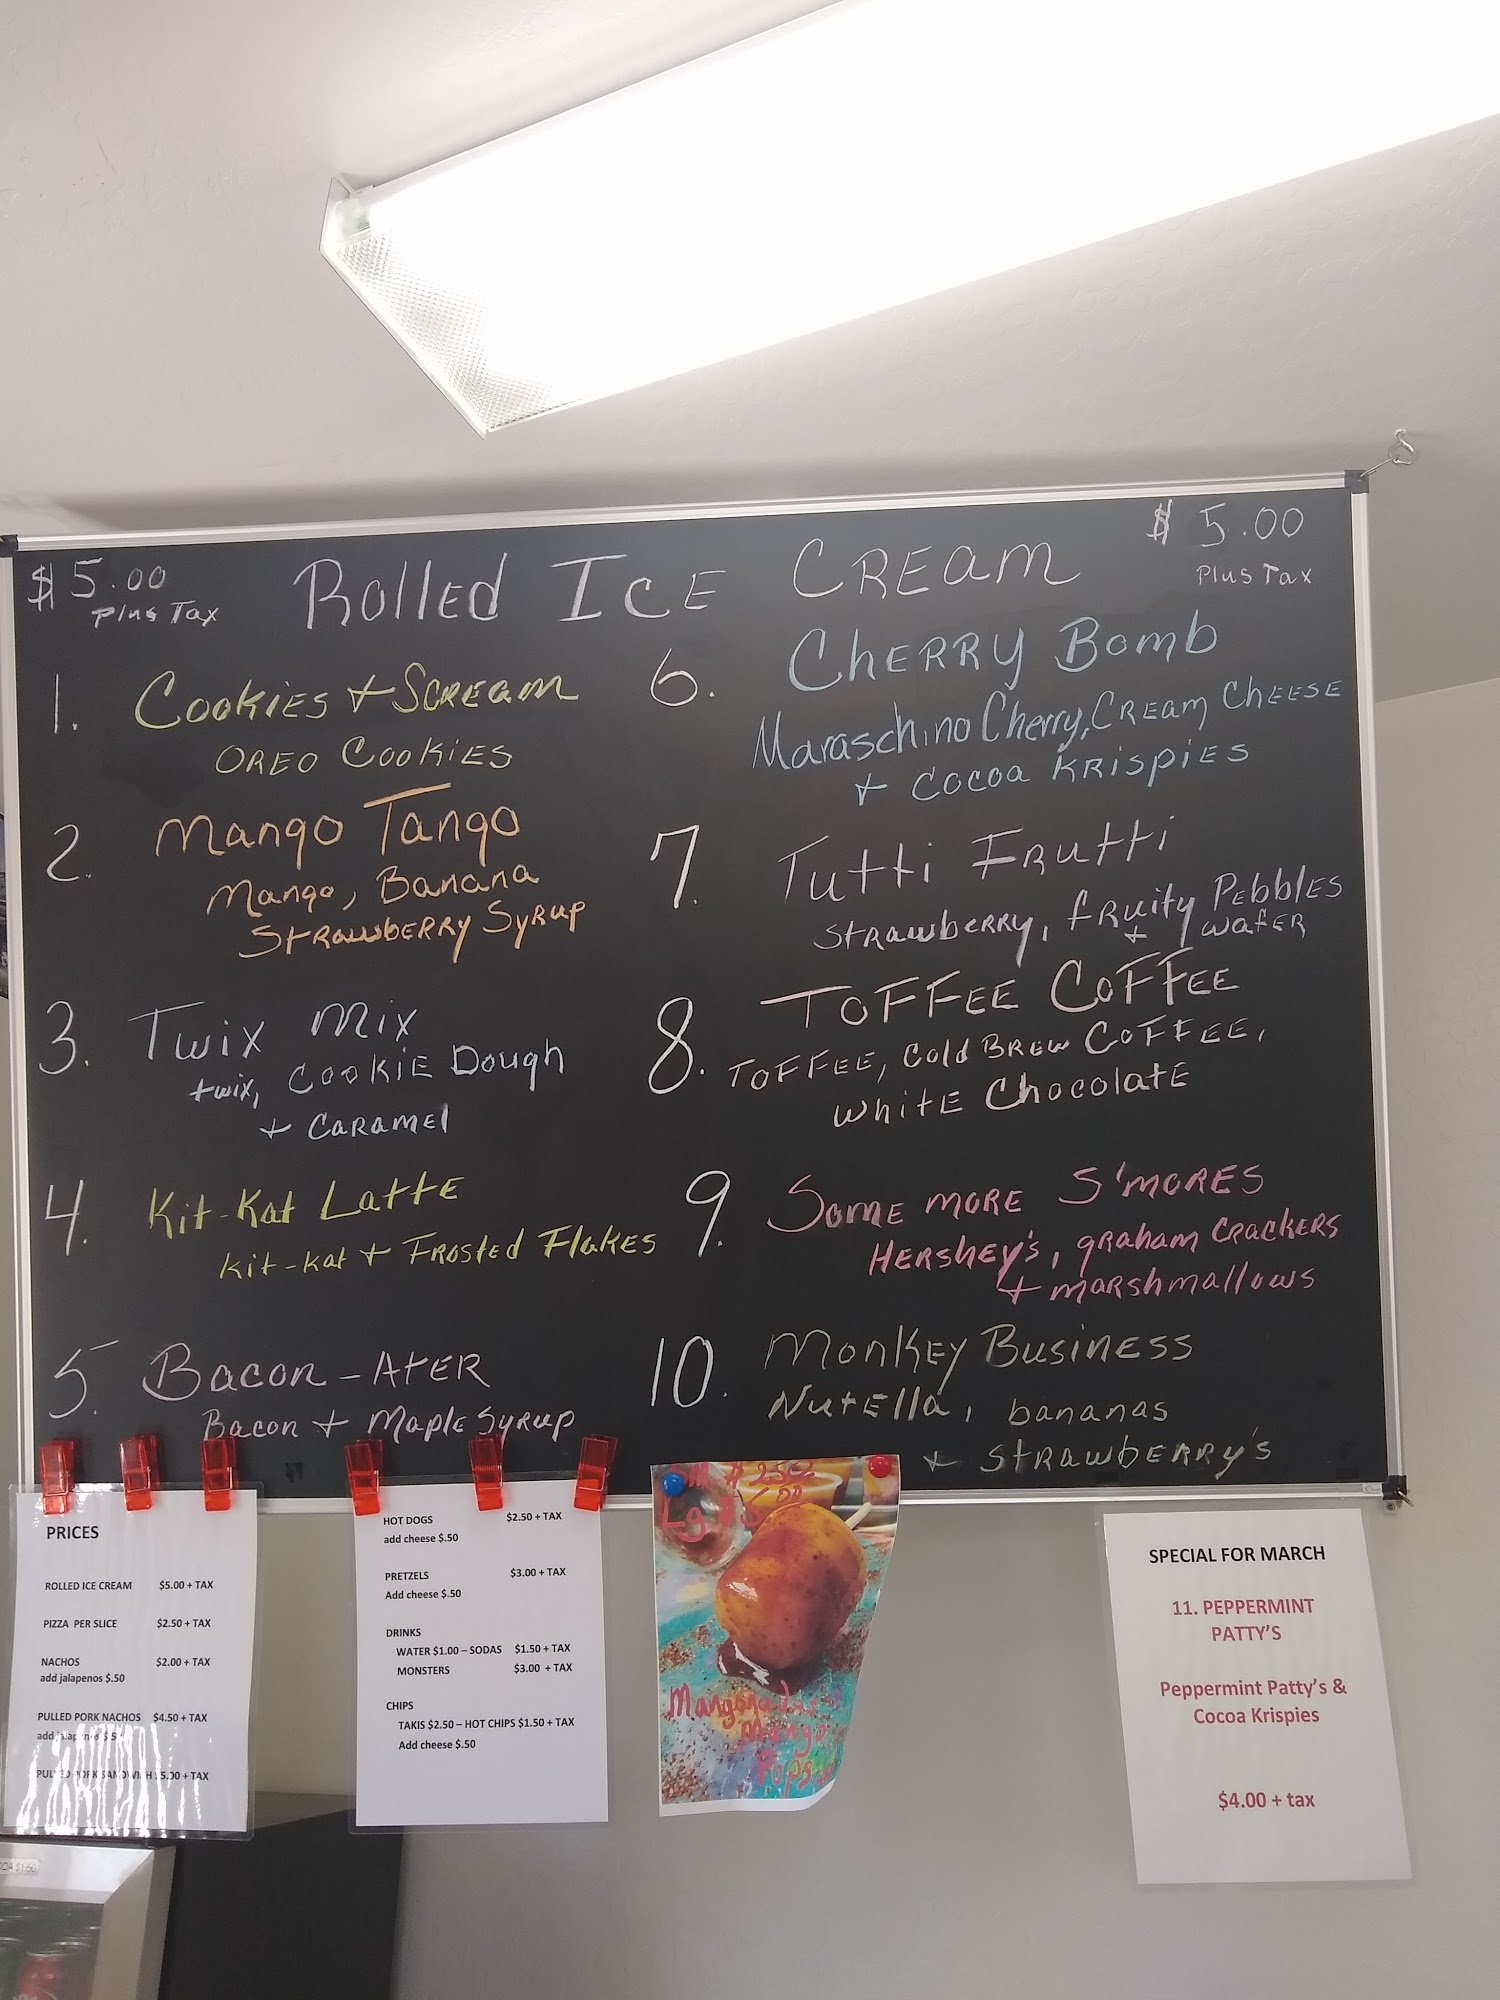 $5.00
Plus Tax
Rolled Ice Cream
$5.00
Plus Tax
1. Cookies + Scream
Oreo Cookies
2. Mango Tango
Mango, Banana
Strawberry Syrup
3. Twix Mix
twix, Cookie Dough
+ Caramel
4. Kit-Kat Latte
Kit-Kat + Frosted Flakes
5. Bacon-Ater
Bacon + Maple Syrup
6. Cherry Bomb
Maraschino Cherry, Cream Cheese
+ Cocoa Krispies
7. Tutti Frutti
Strawberry, fruity Pebbles
+ Wafer
8. Toffee Coffee
Toffee, Cold Brew Coffee,
White Chocolate
9. Some more S'mores
Hershey's, graham Crackers
+ marshmallows
10. Monkey Business
Nutella, bananas
+ Strawberry's
PRICES
ROLLED ICE CREAM $5.00 + TAX
PIZZA PER SLICE $2.50 + TAX
NACHOS $2.00 + TAX
add jalapenos $.50
PULLED PORK NACHOS $4.50 + TAX
add jalapenos $.5
PULLED PORK SANDWICH $5.00 + TAX
HOT DOGS $2.50 + TAX
add cheese $.50
PRETZELS $3.00 + TAX
Add cheese $.50
DRINKS
WATER $1.00 – SODAS $1.50 + TAX
MONSTERS $3.00 + TAX
CHIPS
TAKIS $2.50 – HOT CHIPS $1.50 + TAX
Add cheese $.50
Lg
Mango
Pops
SPECIAL FOR MARCH
11. PEPPERMINT
PATTY'S
Peppermint Patty's &
Cocoa Krispies
$4.00 + tax